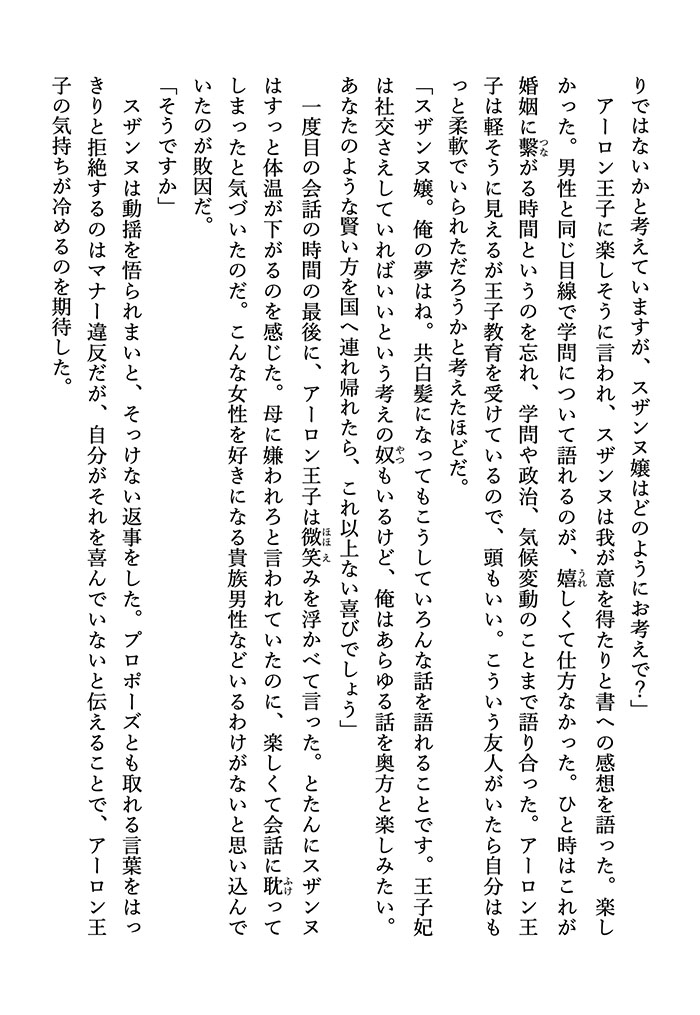 りではないかと考えていますが、スザンヌ嬢はどのようにお考えで？」
　アーロン王子に楽しそうに言われ、スザンヌは我が意を得たりと書への感想を語った。楽し
かった。男性と同じ目線で学問について語れるのが、嬉しくて仕方なかった。ひと時はこれが
婚姻に繫がる時間というのを忘れ、学問や政治、気候変動のことまで語り合った。アーロン王
子は軽そうに見えるが王子教育を受けているので、頭もいい。こういう友人がいたら自分はも
っと柔軟でいられただろうかと考えたほどだ。
「スザンヌ嬢。俺の夢はね。共白髪になってもこうしていろんな話を語れることです。王子妃
は社交さえしていればいいという考えの奴もいるけど、俺はあらゆる話を奥方と楽しみたい。
あなたのような賢い方を国へ連れ帰れたら、これ以上ない喜びでしょう」
　一度目の会話の時間の最後に、アーロン王子は微笑みを浮かべて言った。とたんにスザンヌ
はすっと体温が下がるのを感じた。母に嫌われろと言われていたのに、楽しくて会話に耽って
しまったと気づいたのだ。こんな女性を好きになる貴族男性などいるわけがないと思い込んで
いたのが敗因だ。
「そうですか」
　スザンヌは動揺を悟られまいと、そっけない返事をした。プロポーズとも取れる言葉をはっ
きりと拒絶するのはマナー違反だが、自分がそれを喜んでいないと伝えることで、アーロン王
子の気持ちが冷めるのを期待した。